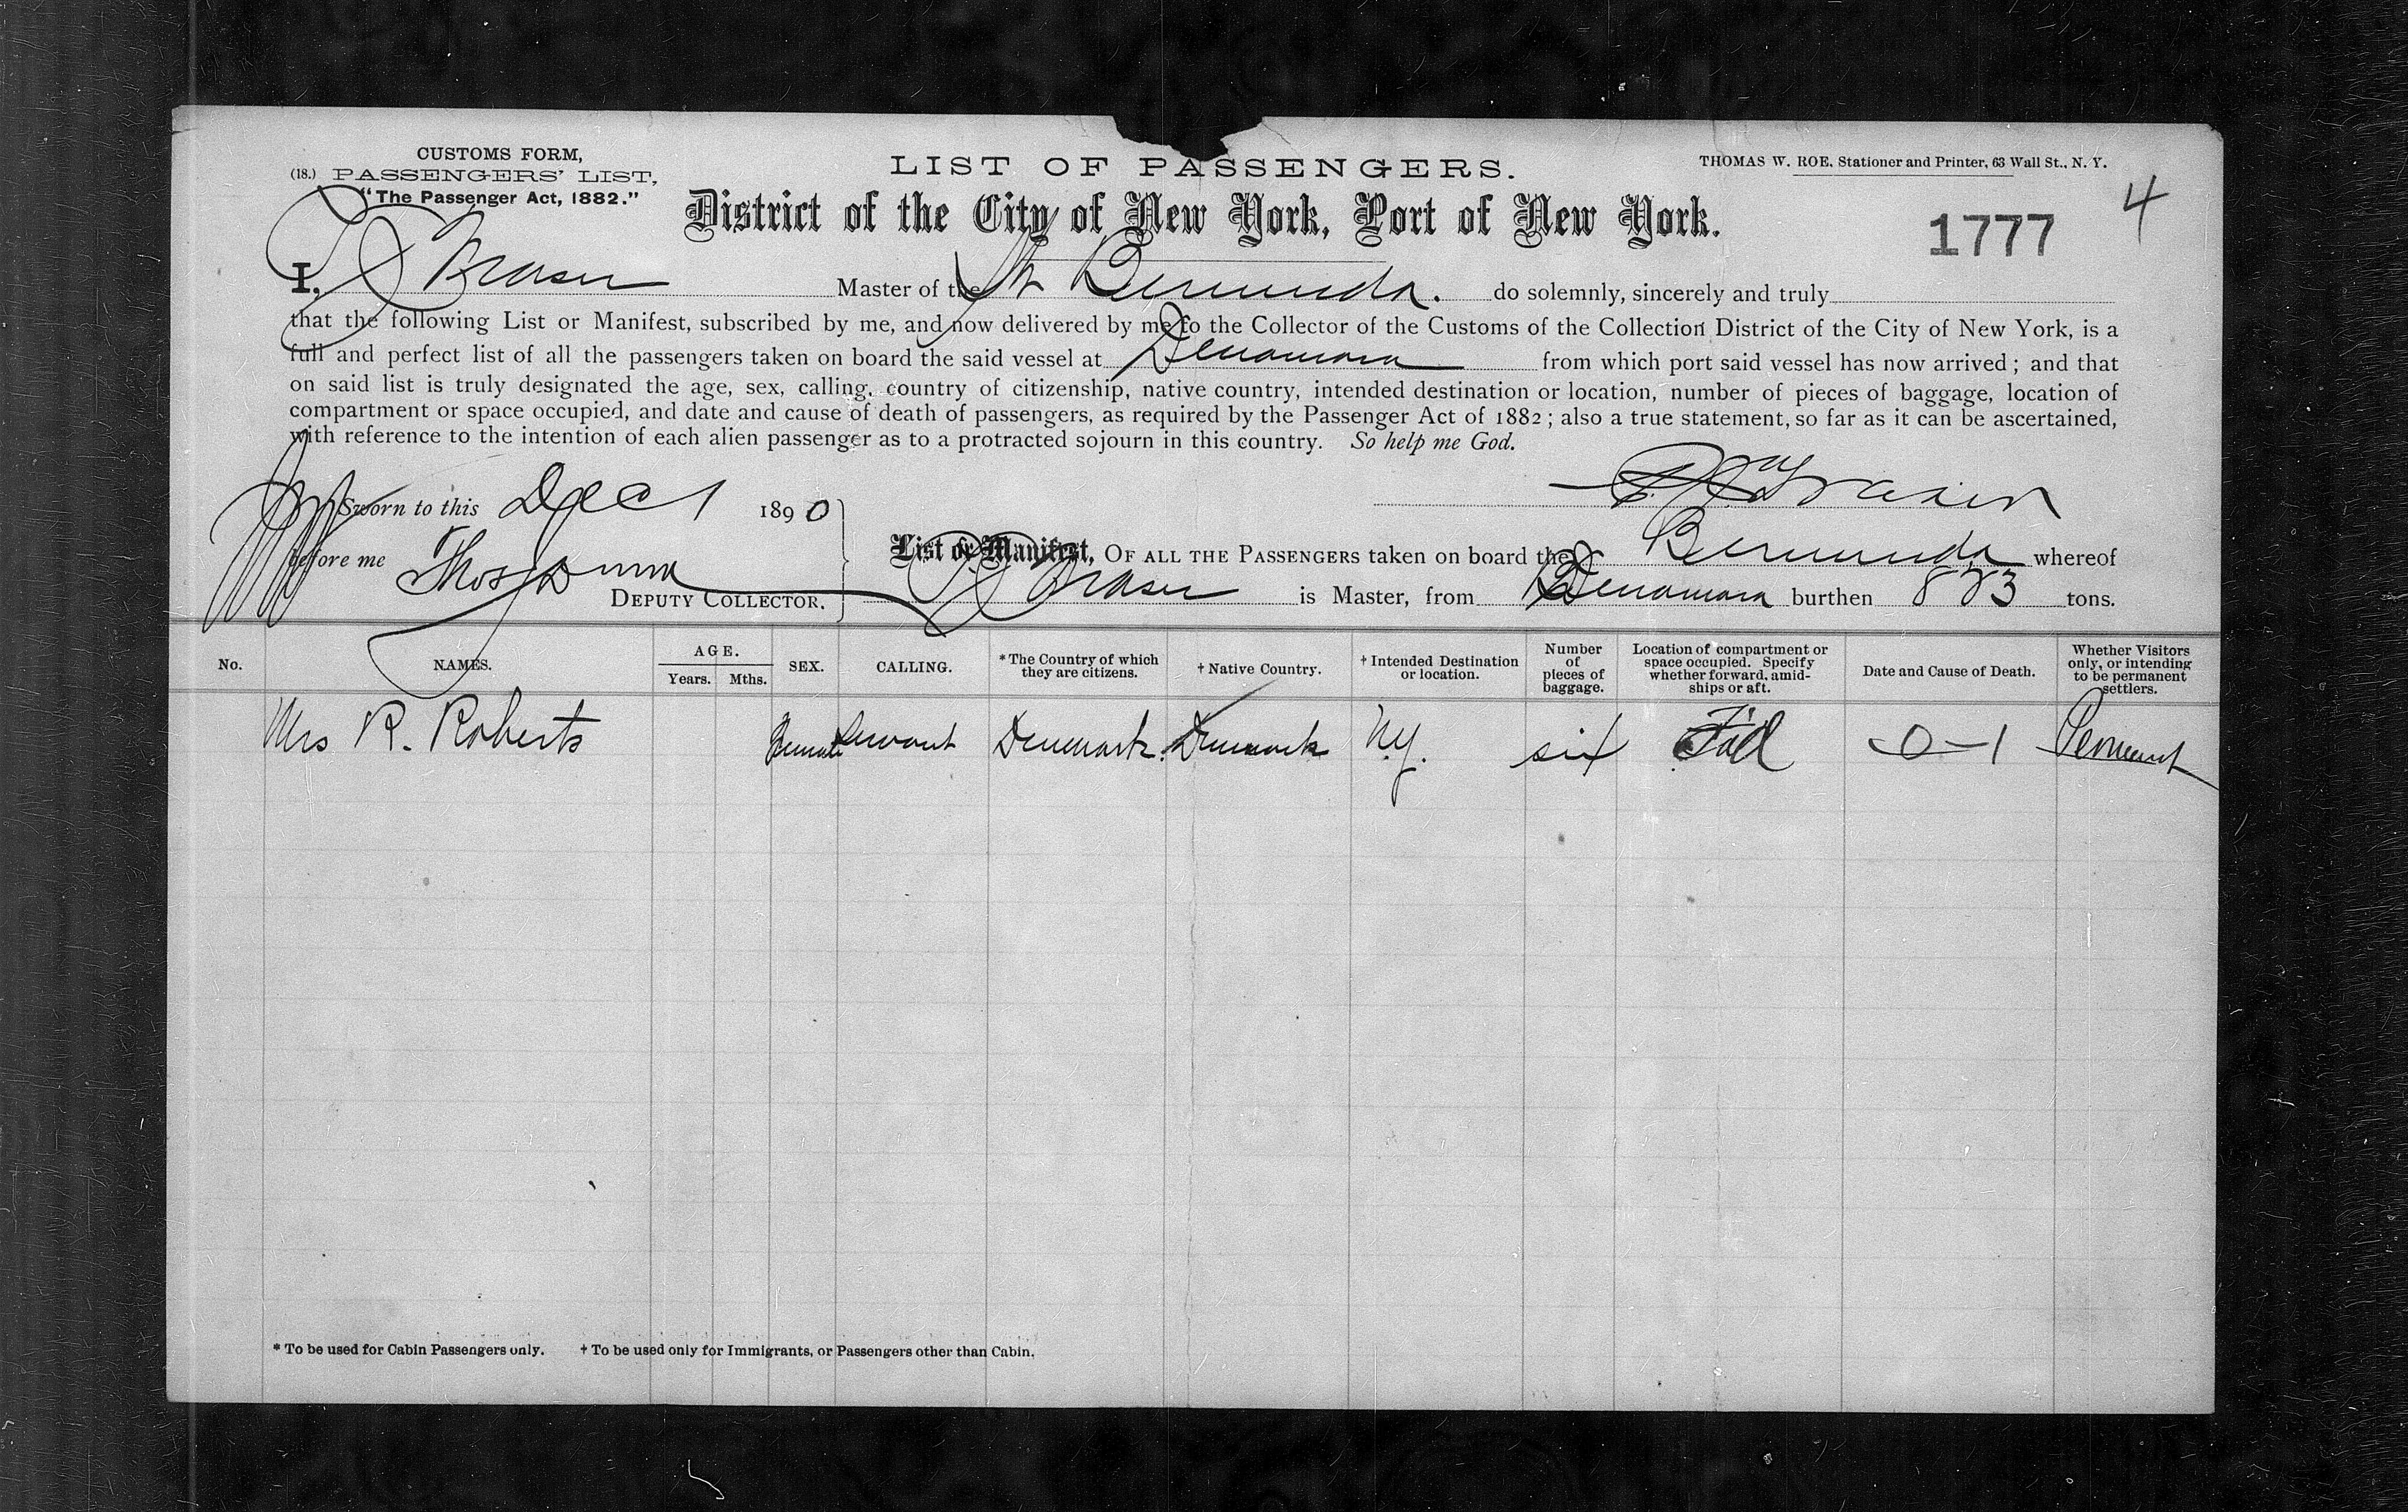 CUSTOMS FORM,
(18.) PASSENGERS' LIST,
"The Passenger Act, 1882."
LIST OF PASSENGERS.
THOMAS W. ROE, Stationer and Printer, 63 Wall St., N. Y.
District of the City of New York, Port of New York.
1777
4
I, Fraser Master of the Str Bermuda. do solemnly, sincerely and truly
that the following List or Manifest, subscribed by me, and now delivered by me to the Collector of the Customs of the Collection District of the City of New York, is a
full and perfect list of all the passengers taken on board the said vessel at Demarara from which port said vessel has now arrived; and that
on said list is truly designated the age, sex, calling, country of citizenship, native country, intended destination or location, number of pieces of baggage, location of
compartment or space occupied, and date and cause of death of passengers, as required by the Passenger Act of 1882; also a true statement, so far as it can be ascertained,
with reference to the intention of each alien passenger as to a protracted sojourn in this country. So help me God.
Fraser
Sworn to this Dec 1 1890
before me Thos Dunn
DEPUTY COLLECTOR.
List or Manifest, OF ALL THE PASSENGERS taken on board the Bermuda whereof
Fraser is Master, from Demarara burthen 883 tons.
No. NAMES. AGE. Years. Mths. SEX. CALLING. *The Country of which they are citizens. †Native Country. †Intended Destination or location. Number of pieces of baggage. Location of compartment or space occupied. Specify whether forward, amidships or aft. Date and Cause of Death. Whether Visitors only, or intending to be permanent settlers.
Mrs R. Roberts Female Servant Denmark. Denmark N.Y. six F'd -0-1
* To be used for Cabin Passengers only. † To be used only for Immigrants, or Passengers other than Cabin.